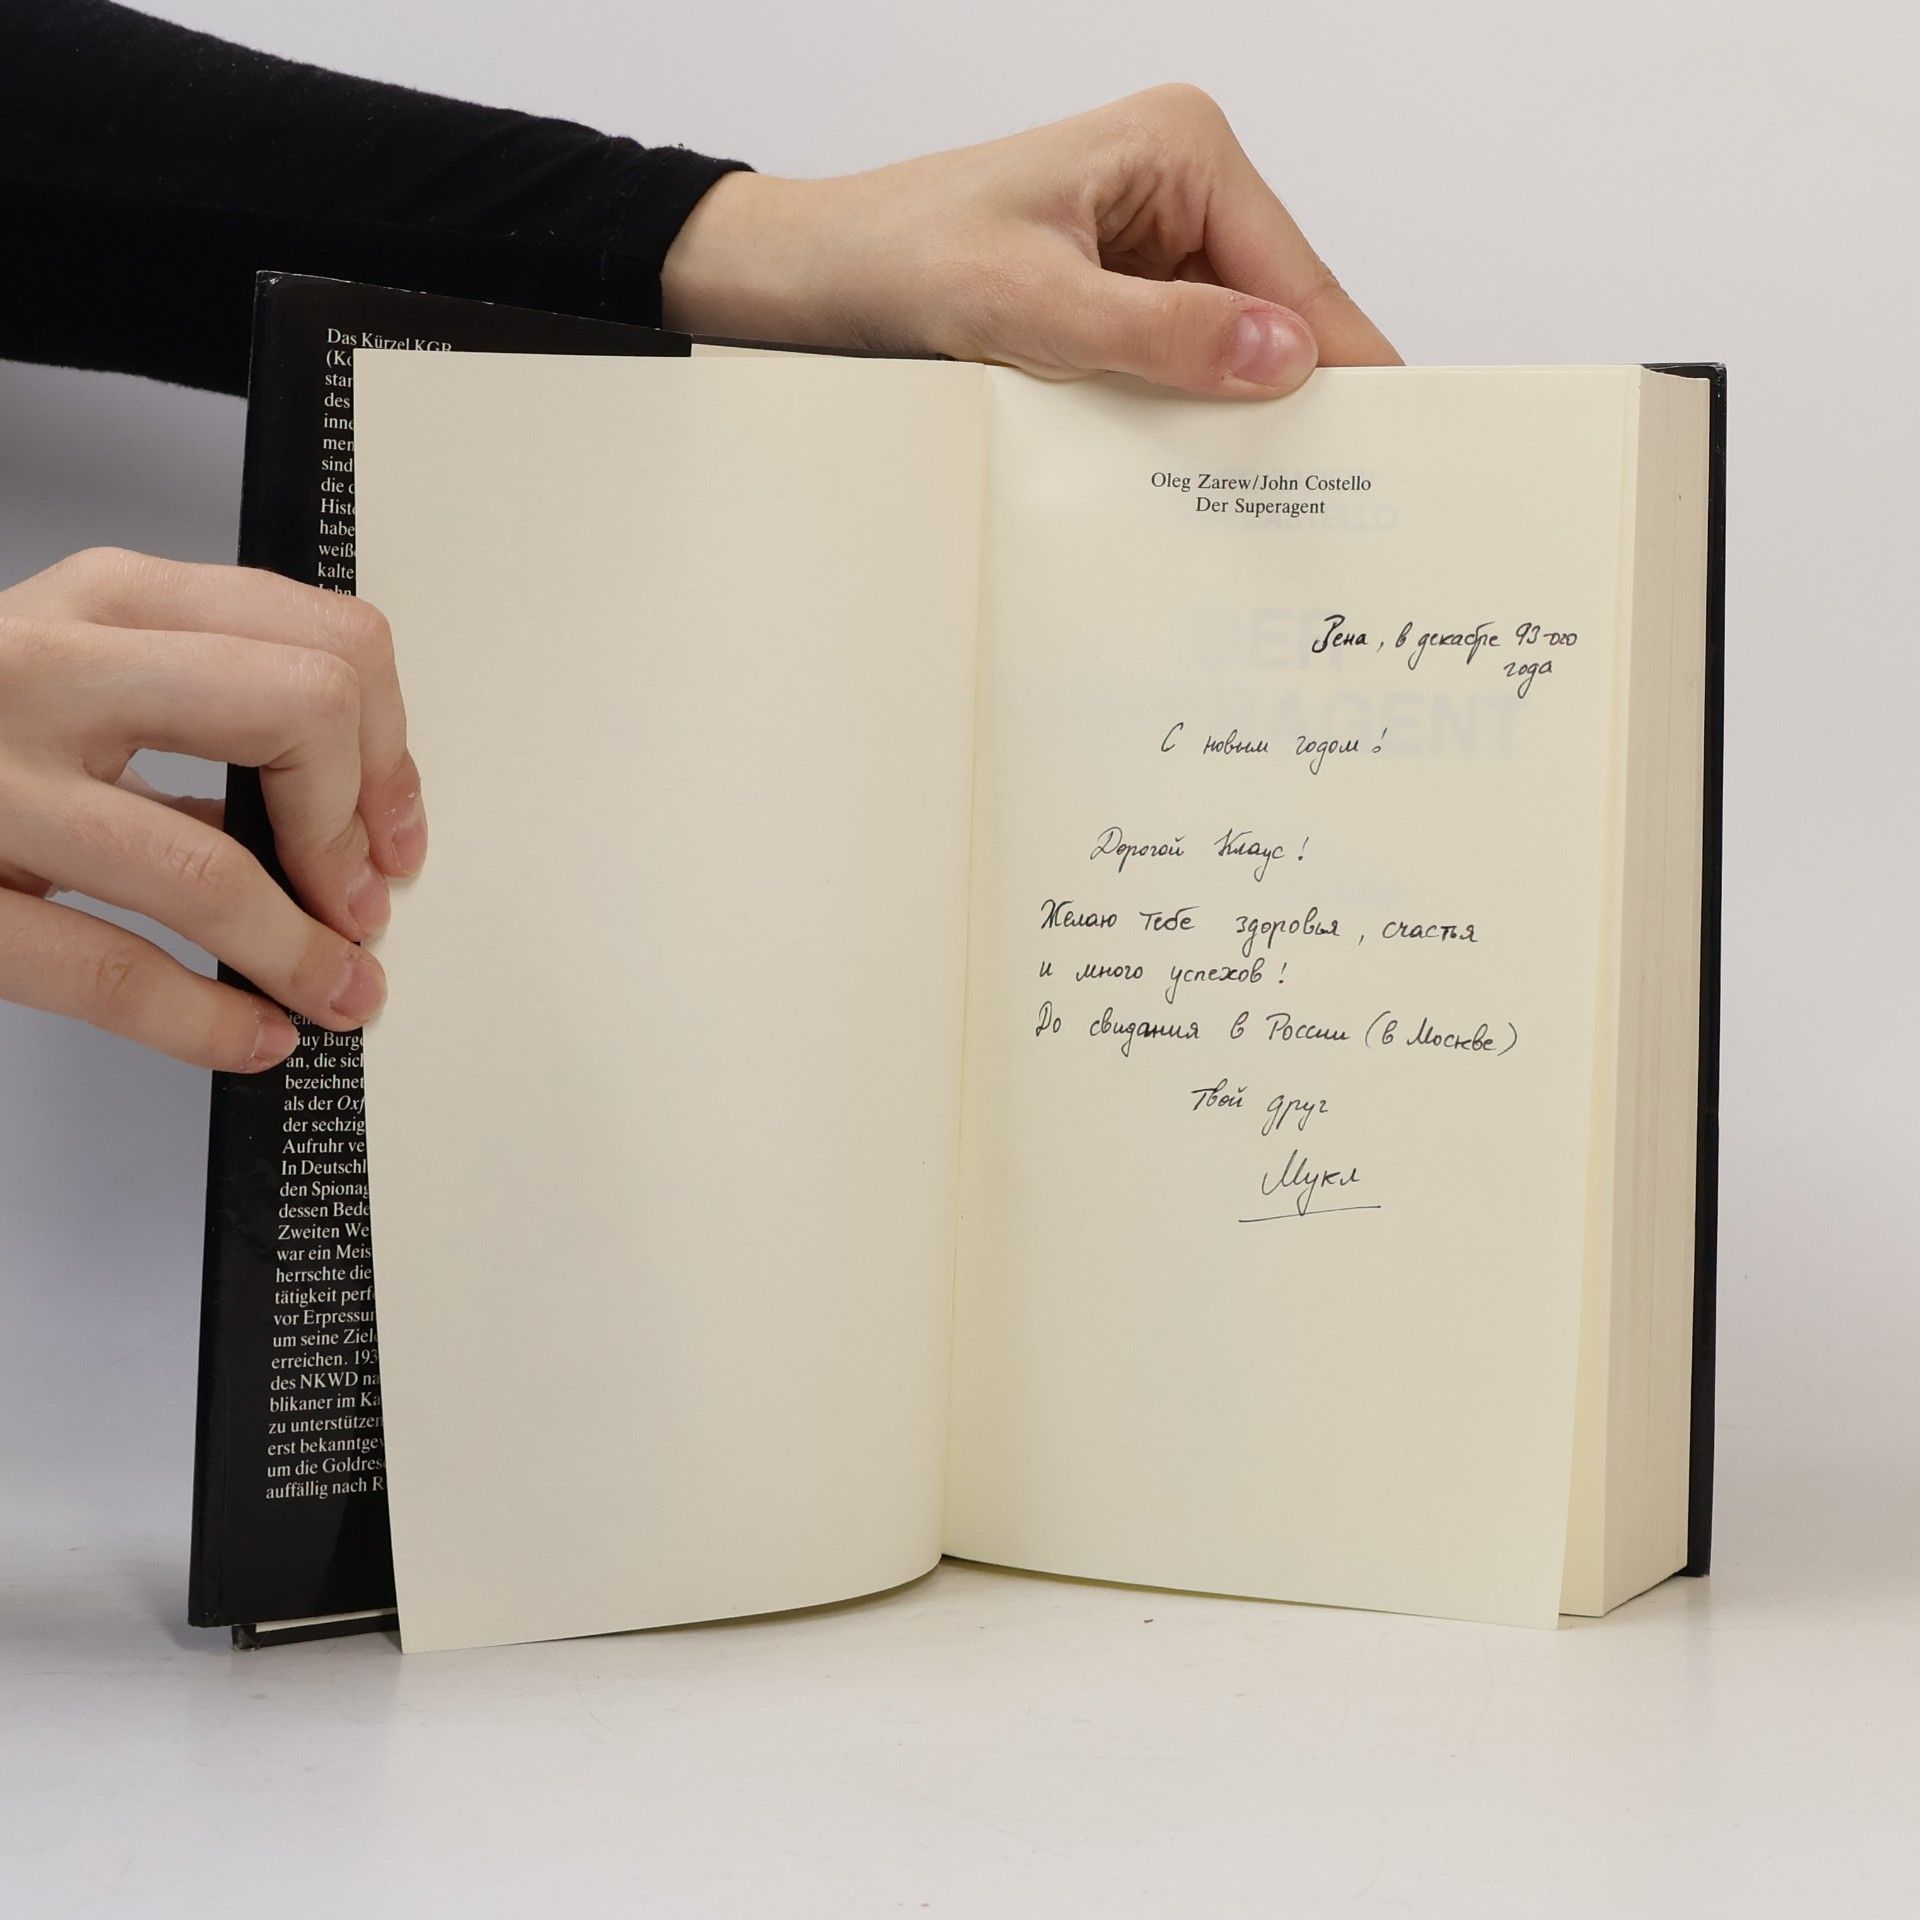 Das Kürzel KGB
(Ko
star
des
inne
men
sind
die d
Histo
habe
weiß
kalte
John
Guy Burge
an, die sich
bezeichnet
als der Oxf
der sechzig
Aufruhr ve
In Deutschl
den Spionag
dessen Bede
Zweiten We
war ein Meis
herrschte die
tätigkeit perf
vor Erpressun
um seine Ziele
erreichen. 193
des NKWD na
blikaner im Ka
zu unterstützen
erst bekanntgew
um die Goldres
auffällig nach R
Oleg Zarew/John Costello
Der Superagent
Вена, в декабре 93-ого
года
С новым годом!
Дорогой Клаус!
Желаю тебе здоровья, счастья
и много успехов!
До свидания в России (в Москве)
Твой друг